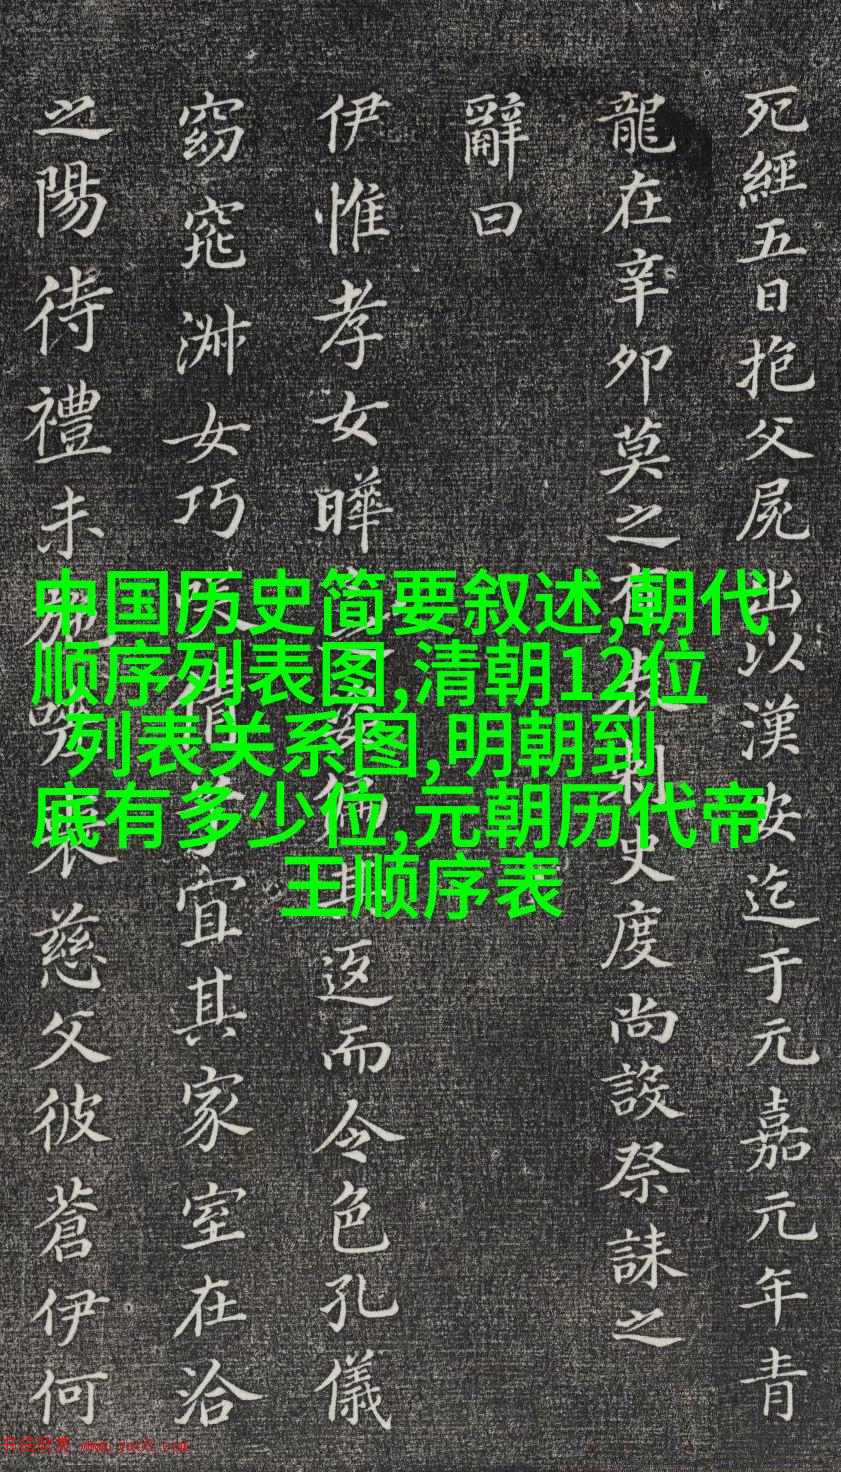 中国历史简要叙述,朝代
顺序列表图,清朝12位
列表关系图,明朝到
底有多少位,元朝历代帝
王顺序表
死經五日抱父屍出以漢安迄于元嘉元年青
龍在辛卯莫之有表刺史度尚設祭誄之
辭曰
伊惟孝女曄
其返而令色孔儀
窈窕淑女巧
宜其家室在洽
之陽待禮未
慈父彼蒼伊何
www.yac8.com